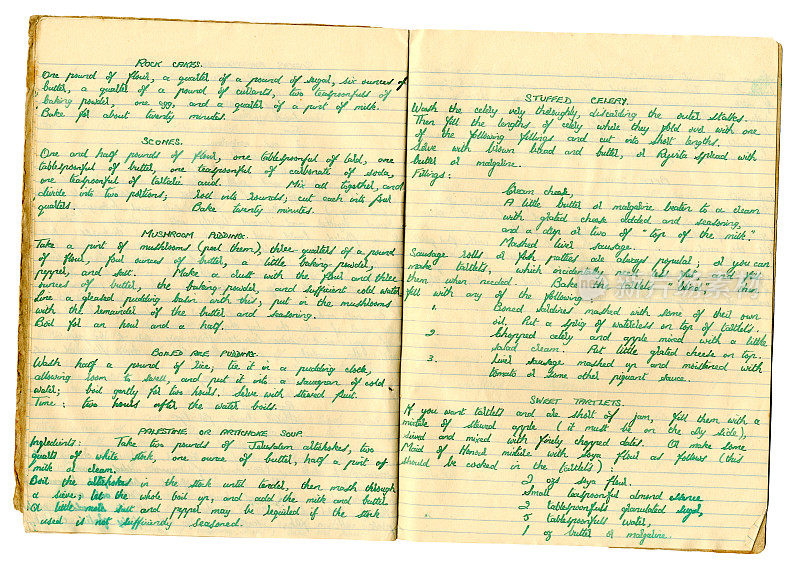 ROCK CAKES.
One pound of flour, a quarter of a pound of sugar, six ounces of
butter, a quarter of a pound of currants, two teaspoonfuls of
baking powder, one egg, and a quarter of a pint of milk.
Bake for about twenty minutes.
SCONES.
One and half pounds of flour, one tablespoonful of lard, one
tablespoonful of butter, one teaspoonful of carbonate of soda,
one teaspoonful of tartaric acid. Mix all together, and
divide into two portions; roll into rounds; cut each into four
quarters. Bake twenty minutes.
MUSHROOM PUDDING.
Take a pint of mushrooms (peel them), three quarters of a pound
of flour, four ounces of butter, a little baking powder,
pepper, and salt. Make a crust with the flour and three
ounces of butter, the baking powder, and sufficient cold water.
Line a greased pudding basin with this; put in the mushrooms
with the remainder of the butter and seasoning.
Boil for an hour and a half.
BOILED RICE PUDDING.
Wash half a pound of rice; tie it in a pudding cloth,
allowing room to swell, and put it into a saucepan of cold
water; boil gently for two hours. Serve with stewed fruit.
Time: two hours after the water boils.
PALESTINE OR ARTICHOKE SOUP.
Ingredients: Take two pounds of Jerusalem artichokes, two
quarts of white stock, one ounce of butter, half a pint of
milk or cream.
Boil the artichokes in the stock until tender, then mash through
a sieve; let the whole boil up, and add the milk and butter
A little more salt and pepper may be required if the stock
used is not sufficiently seasoned.
STUFFED CELERY.
Wash the celery very thoroughly, discarding the outer stalks.
Then fill the lengths of celery where they fold over with one
of the following fillings and cut into short lengths.
Serve with brown bread and butter, or Ryvita spread with
butter or margarine.
Fillings:
Cream cheese,
A little butter or margarine beaten to a cream
with grated cheese added and seasoning,
and a drop or two of "top of the milk."
Mashed liver sausage.
Sausage rolls or fish patties are always popular; or you can
make tartlets, which incidentally need less fat, and fill
them when needed. Bake the
fill with any of the following
1. Boned sardines mashed with some of their own
oil. Put a sprig of watercress on top of tartlets.
2. Chopped celery and apple mixed with a little
salad cream. Put little grated cheese on top.
3. Liver sausage mashed up and moistened with
tomato or some other piquant sauce.
SWEET TARTLETS.
If you want tartlets and are short of jam, fill them with a
mixture of stewed apple (it must be on the dry side),
sieved and mixed with finely chopped dates. Or make some
Maid of Honour mixture with soya flour as follows (this
should be cooked in the tartlets):
2 ozs soya flour.
Small teaspoonful almond essence
2 tablespoonfuls granulated sugar,
5 tablespoonfuls water,
1 oz butter or margarine.